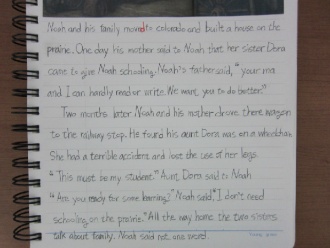 Noah and his family moved to colorado and built a house on the
prairie. One day his mother said to Noah that her sister Dora
came to give Noah schooling. Noah's father said, "your ma
and I can hardly read or write. We want you to do better."
Two months later Noah and his mother drove there wagon
to the railway stop. He found his aunt Dora was on a wheelchair.
She had a terrible accident and lost the use of her legs.
"This must be my student." Aunt Dora said to Noah
"Are you ready for some learning?" Noah said, "I don't need
schooling on the prairie." All the way home the two sisters
talk about family. Noah said not one word.